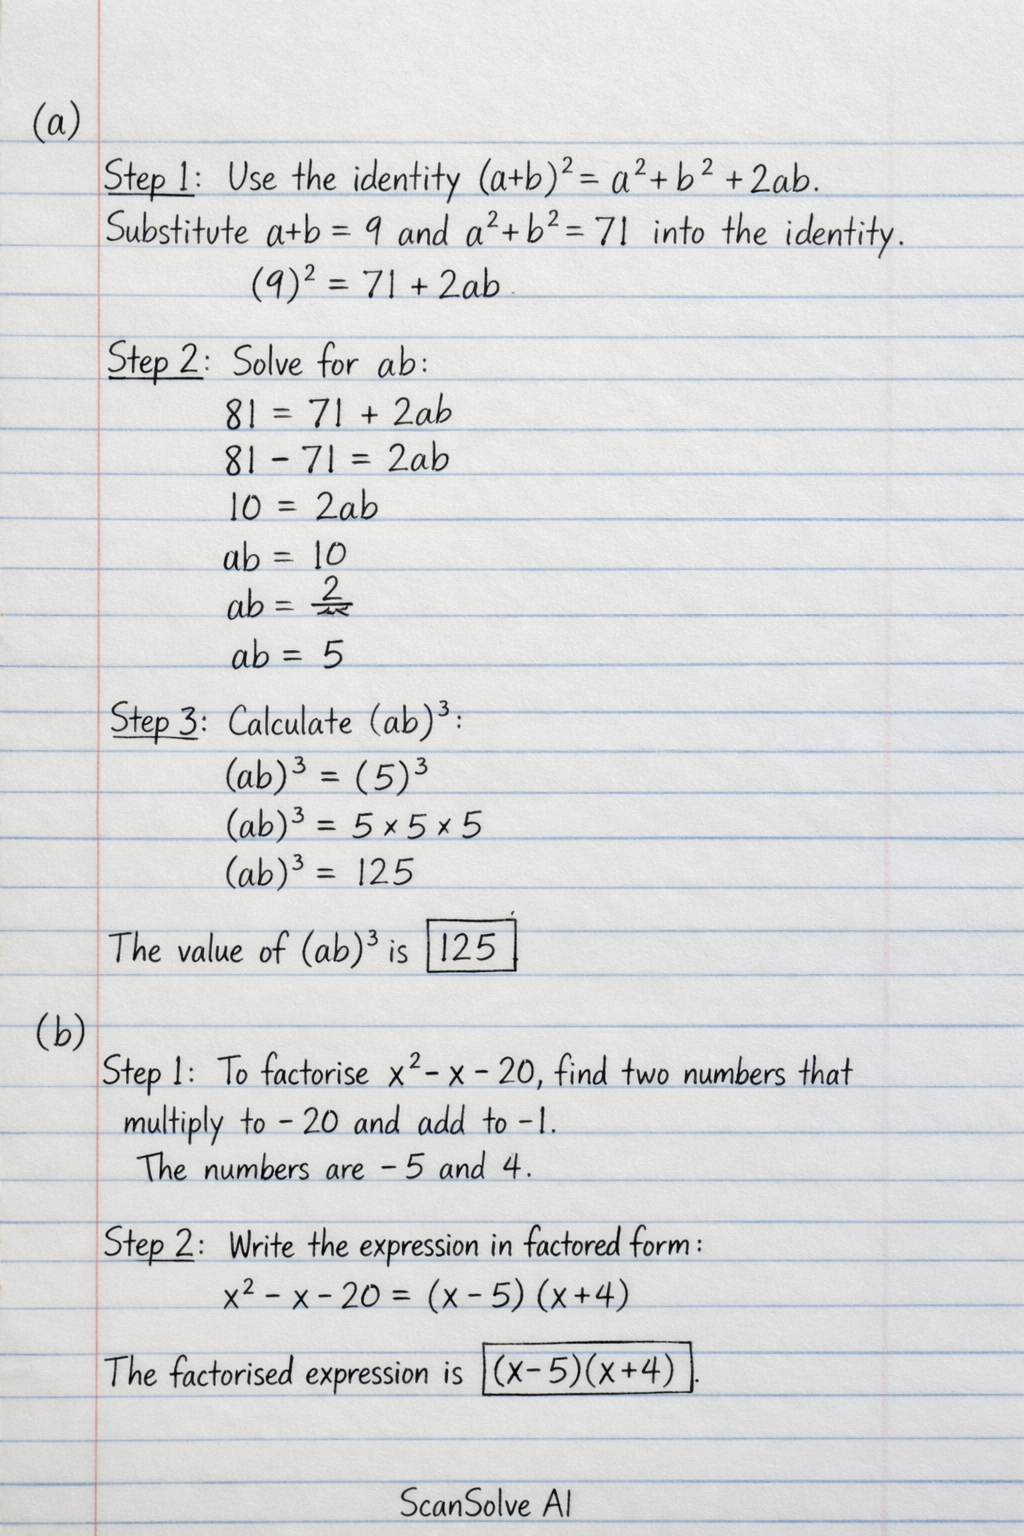 (a)
Step 1: Use the identity (a+b)² = a² + b² + 2ab.
Substitute a+b = 9 and a² + b² = 71 into the identity.
(9)² = 71 + 2ab
Step 2: Solve for ab:
81 = 71 + 2ab
81 - 71 = 2ab
10 = 2ab
ab = 10
ab = 2
ab = 5
Step 3: Calculate (ab)³:
(ab)³ = (5)³
(ab)³ = 5 × 5 × 5
(ab)³ = 125
The value of (ab)³ is 125
(b)
Step 1: To factorise x² - x - 20, find two numbers that
multiply to - 20 and add to -1.
The numbers are - 5 and 4.
Step 2: Write the expression in factored form:
x² - x - 20 = (x - 5) (x + 4)
The factorised expression is (x - 5)(x + 4).
ScanSolve AI